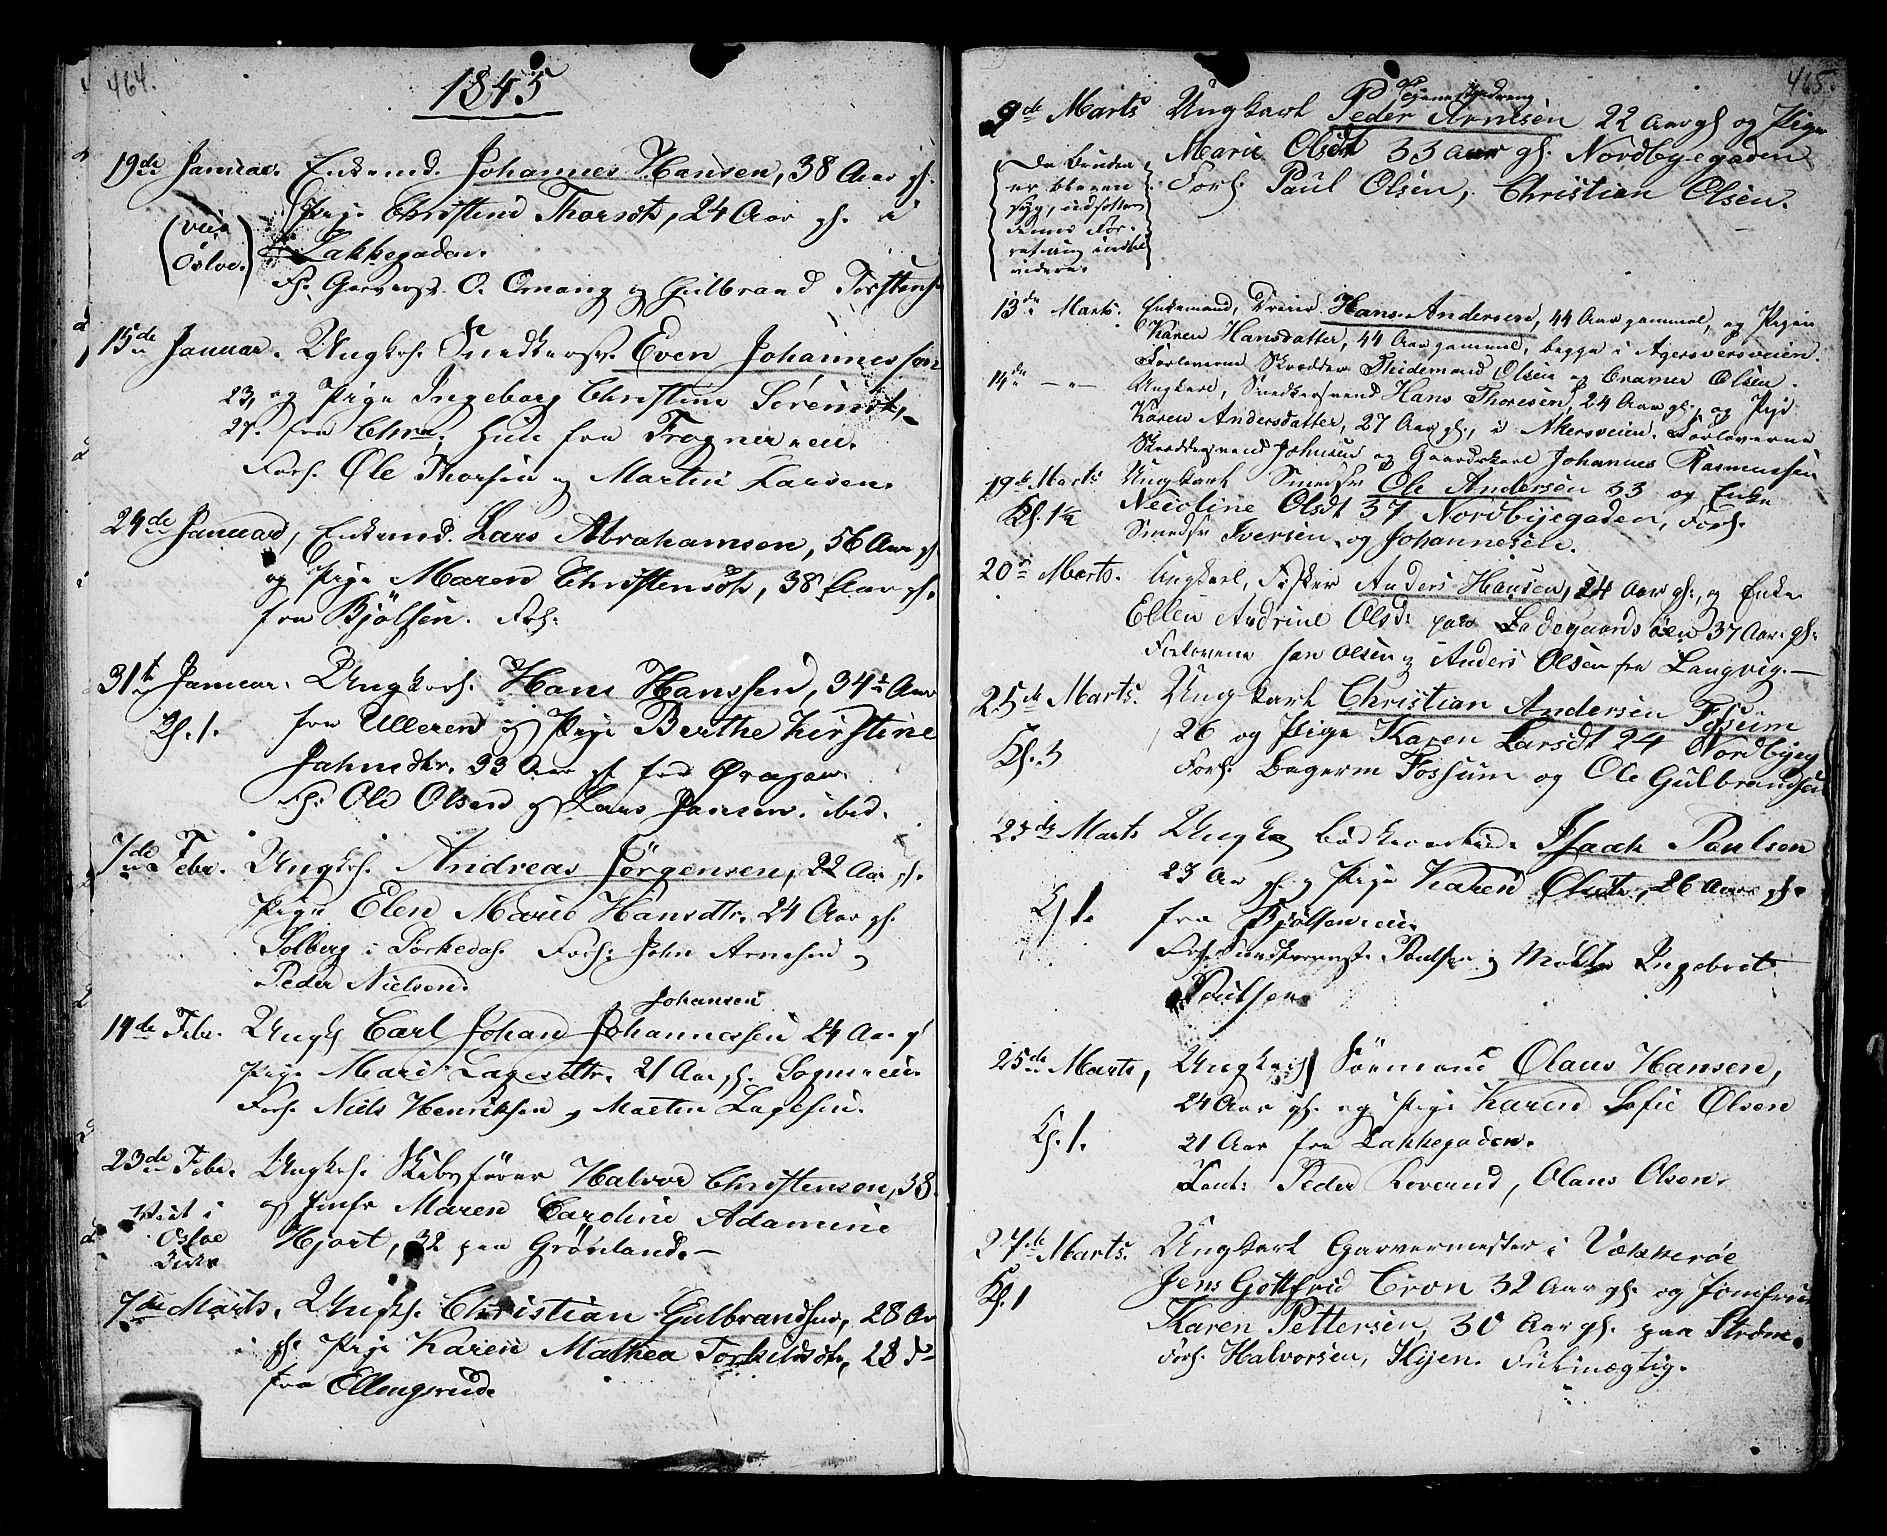 464.
1845
19de Januar. Enkemd. Johannes Hansen, 38 Aar gl.
Pige Christine Thorsdt, 24 Aar gl. i
(viet Osloe.) Lakkegaden.
Fh. Garversv. O. Omang og Gulbrand Torstens.
15de Januar. Ungkrl. Snedkersv. Even Johannessen
23, og Pige Ingeborg Christine Sørensdt,
27. fra Chra, hun fra Frogner=ei.
Forl. Ole Thorsen og Martin Larsen.
24de Januar, Enkemd. Lars Abrahamsen, 56 Aar gl.
og Pige Maren Christensdt, 38 Aar gl.
fra Bjølsen. Forl:
31te Januar. Ungkrl. Hans Hanssen, 34 Aar
Kl. 1. fra Ulleren og Pige Berthe Kirstine
Jahnsdtr. 33 Aar gl. fra
Fl: Ole Olsen og Lars Jansen. ibid.
7de Febr. Ungkrl. Andreas Jørgensen, 22 Aar gl.
Pige Elen Marie Hansdtr. 24 Aar gl.
Solberg i Sørkedal. Forl: John Arnesen og
Peder Nielsen.
Johansen
14de Febr. Ungk Carl Johan Johannessen 24 Aar g
Pige Mari Lagesdtr. 21 Aar gl. Sogn=ei.
Forl. Niels Henriksen og Martin Lagesen.
23de Febr. Ungkrl. Skibsfører Halvor Christensen, 38
og Jmfr Maren Caroline Adamine
Viet i Osloe Kirke Hjort, 32 paa Grønland.—
7de Marts. Ungkrl. Christian Gulbrandsen, 28 Aar
gl. Pige Karen Mathea Torkildsdtr, 28
fra Ellingsrud.
465.
Tjenestedreng
9de Marts Ungkarl Peder Arnesen 22 Aar gl og Pige
Marie Olsdt 33 Aar gl. Nordbyegaden
Forl. Paul Olsen, Christian Olsen.
Da Bruden
er bleven
syg, udsættes
denne For-
retning indtil
videre.
13de Marts. Enkemand, Dreier Hans Andersen, 44 Aar gammel, og Pigen
Karen Hansdatter, 44 Aar gammel, begge i Agersversveien.
Forloverne Skrædder Thidemand Olsen og Cramer Olsen.
14de —"— Ungkarl, Snedkersvend Hans Thoresen, 24 Aar gl., og Pige
Karen Andersdatter, 27 Aar gl., i Akersveien. Forloverne
Skræddersvend Johnsen og Gaardskarl Johannes Rasmussen
19de Marts Ungkarl Smedsv Ole Andersen 33 og Enke
Kl. 1½ Nicoline Olsdt 37 Nordbyegaden, Forl.
Smedsv Iversen og Johannesen.
20de Marts. Ungkarl, Fisker Anders Hansen, 24 Aar gl., og Enke
Ellen Andrine Olsd: paa Ladegaardsøen 37 Aar gl.
Forloverne Jan Olsen og Anders Olsen fra Langvig.—
25de Marts. Ungkarl Christian Andersen Fossum
26 og Pige Karen Larsdt 24 Nordbyeg
Kl. 3 Forl. Bagerm Fossum og Ole Gulbrandsen
25de Marts Ungk Isaak Paulsen
23 Aar gl. og Pige Karen Olsdtr, 26 Aar gl.
Kl 1. fra Bjølsen=ei.
Forl. Snedkersvend Paulsen og Møller Ingebret
Paulsen.
25de Marts, Ungkarl Sømand Olaus Hansen,
24 Aar gl. og Pige Karen Sofie Olsen
Kl. 1. 21 Aar fra Lakkegaden.
Peder Leverud, Olaus Olsen.
27de Marts. Ungkarl Garvermester i Vækkerøe
Kl. 1 Jens Gottfrid Cron 32 Aar gl. og Jomfrue
Karen Pettersen, 30 Aar gl. paa Strøm.
Forl. Halvorsen, Kijen. Fulmægtig.